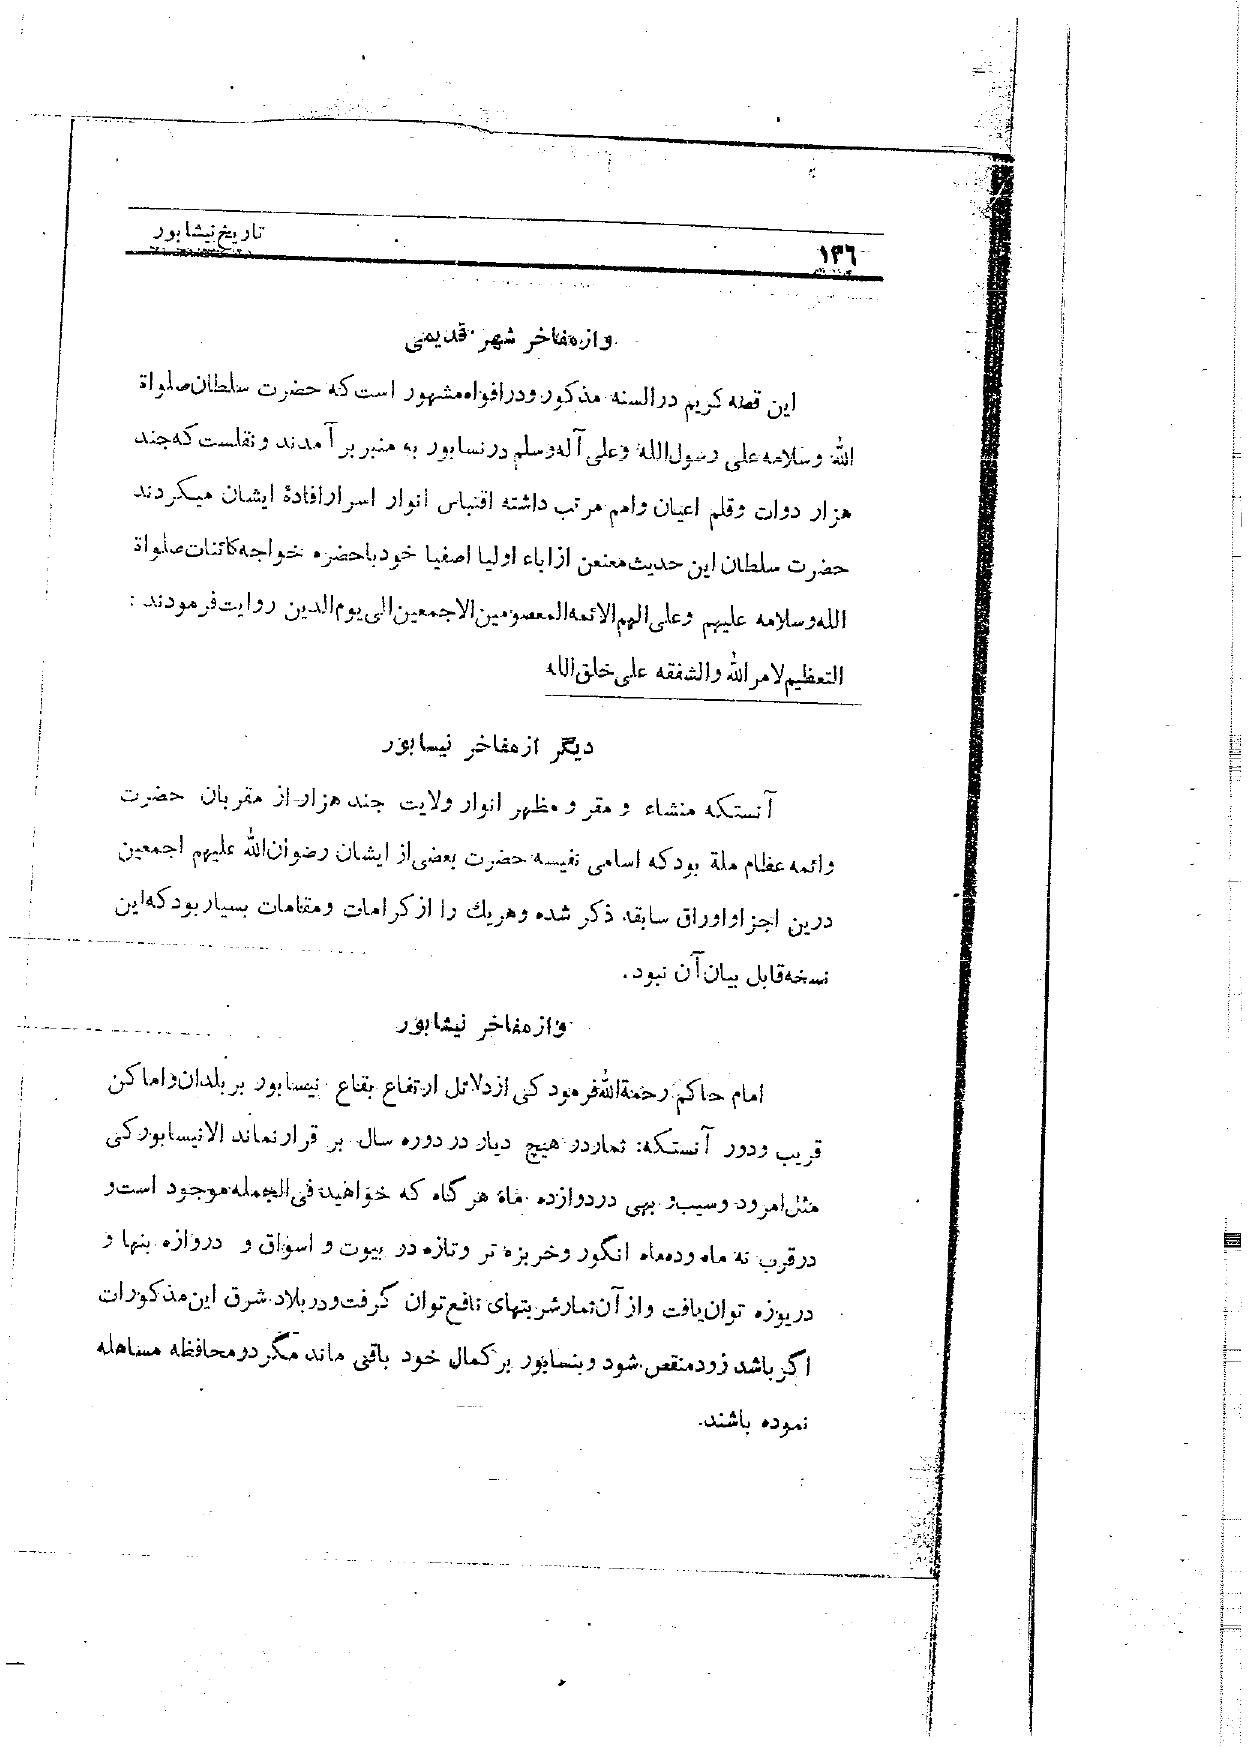 تاریخ نیشابور
١٣٦
و از مفاخر شهر قدیمی
این قصه کریم در السنه مذکور و در افواه مشهور است که حضرت سلطان صلواة
الله وسلامه علی رسول الله وعلی آله وسلم در نسابور به منبر بر آمدند و نقلست که جند
هزار دوات وقلم اعیان وامم مرتب داشته اقتباس انوار اسرار افادۀ ایشان میکردند
حضرت سلطان این حدیث معنعن از اباء اولیا اصفیا خود با حضره خواجه کائنات صلواة
الله وسلامه علیهم وعلی الهم الائمه المعصومین الاجمعین الی یوم الدین روایت فرمودند :
التعظیم لامر الله والشفقه علی خلق الله
دیگر از مفاخر نیسابور
آنستکه منشاء و مقر و مظهر انوار ولایت جند هزار از مقربان حضرت
وائمه عظام ملة بود که اسامی نفیسه حضرت بعضی از ایشان رضوان الله علیهم اجمعین
درین اجزا و اوراق سابقه ذکر شده وهریك را از کرامات ومقامات بسیار بود که این
نسخه قابل بیان آن نبود.
و از مفاخر نیشابور
امام حاکم رحمة الله فرمود کی از دلائل ارتفاع بقاع نیسابور بر بلدان و اماکن
قریب ودور آنستکه: ثمار در هیچ دیار در دوره سال بر قرار نماند الا نیسابور کی
مثل امرود وسیب و بهی در دوازده ماه هر گاه که خواهید فی الجمله موجود است و
در قرب نه ماه وده ماه انگور وخربزه تر وتازه در بیوت و اسواق و دروازه بنها و
دریوزه توان یافت و از آن ثمار شربتهای نافع توان گرفت و در بلاد شرق این مذکورات
اگر باشد زود منقص شود وبنسابور بر کمال خود باقی ماند مگر در محافظه مساهله
نموده باشند.